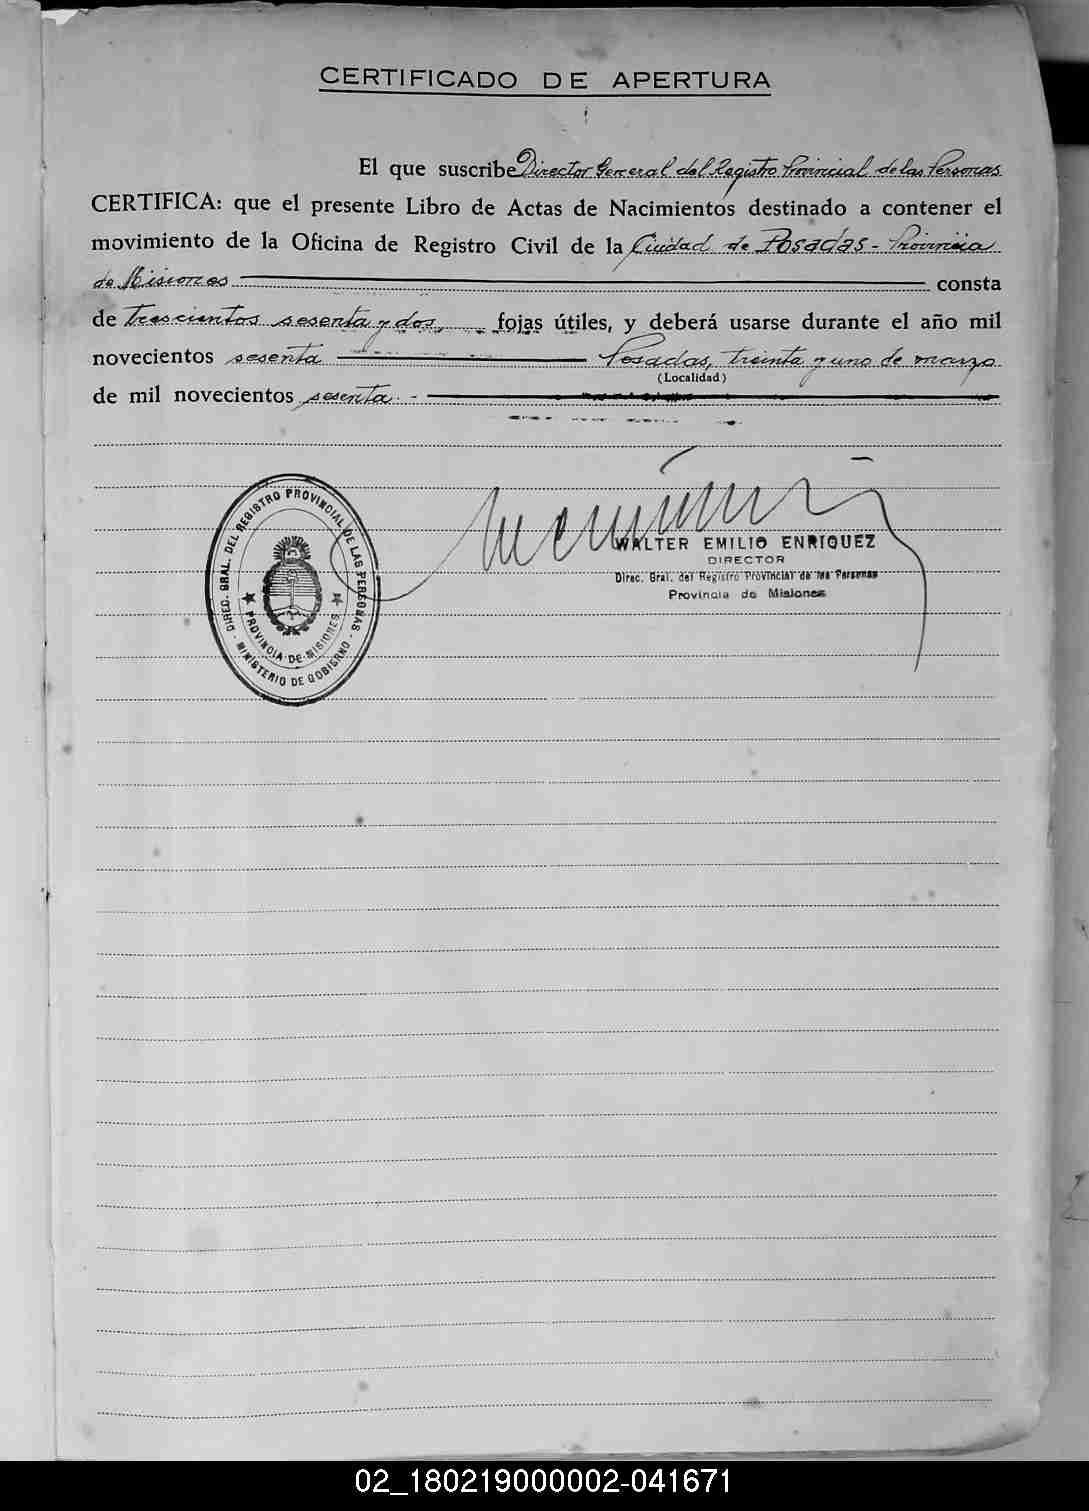 CERTIFICADO DE APERTURA
El que suscribe Director General del Registro Provincial de las Personas
CERTIFICA: que el presente Libro de Actas de Nacimientos destinado a contener el
movimiento de la Oficina de Registro Civil de la Ciudad de Posadas - Provincia
de Misiones consta
de trescientos sesenta y dos, fojas útiles, y deberá usarse durante el año mil
novecientos sesenta Posadas, treinta y uno de marzo
(Localidad)
de mil novecientos sesenta. -
DIREC. GRAL. DEL REGISTRO PROVINCIAL DE LAS PERSONAS
PROVINCIA DE MISIONES
- MINISTERIO DE GOBIERNO -
WALTER EMILIO ENRIQUEZ
DIRECTOR
Direc. Gral. del Registro Provincial de las Personas
Provincia de Misiones
02_180219000002-041671